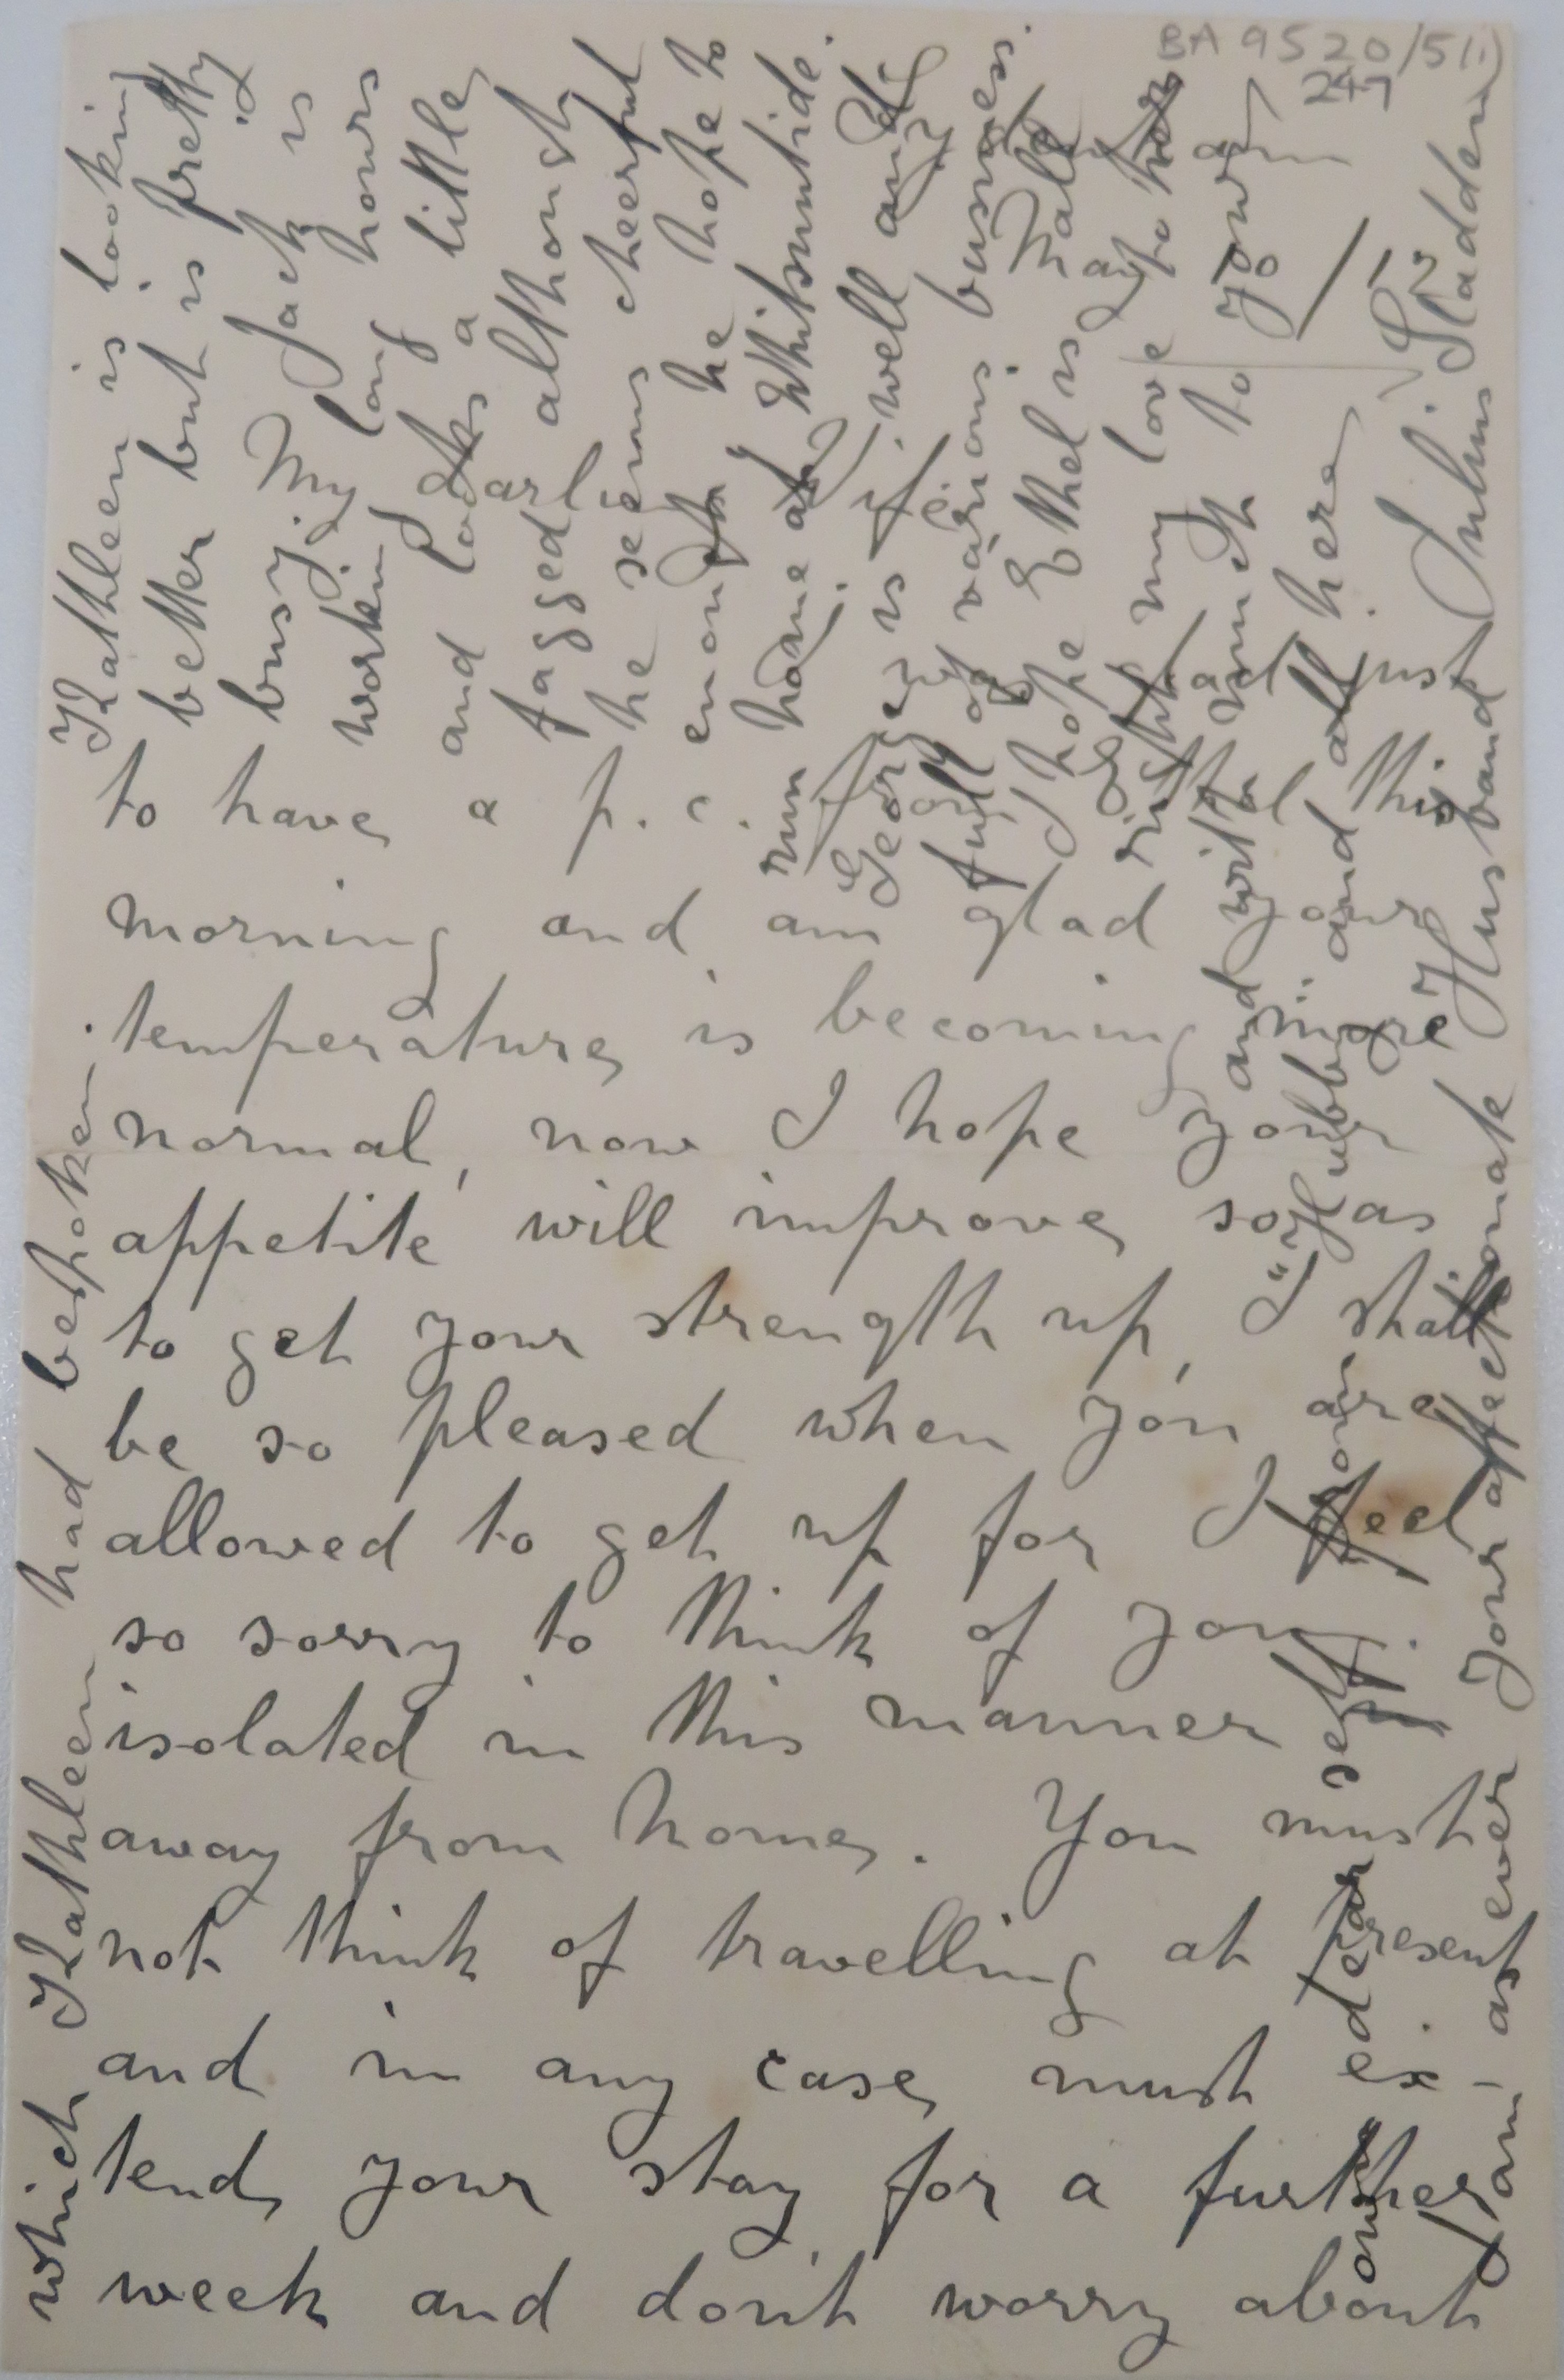 BA 9520/5(i)
247
My darling
Wife
had just
to have a p.c. Ethel this
morning and am glad your
temperature is becoming more
normal, now I hope your
appetite will improve so as
to get your strength up, I shall
be so pleased when you are
allowed to get up for I feel
so sorry to think of you
isolated in this manner
away from home. You must
not think of travelling at present
and in any case must ex-
tend your stay for a further
week and don't worry about
which Kathleen had bespoken.
Kathleen is looking
better but is pretty
busy. Jack is
working long hours
and looks a little
fagged although
he seems cheerful
enough, he hope to
run home at Whitsuntide.
Georgey is well and
full of various business.
I hope Ethel is all
right my love to her
and with much to your
own dear self from "Hubby" and all here
I am as ever Your affectionate Husband Julius Sladden